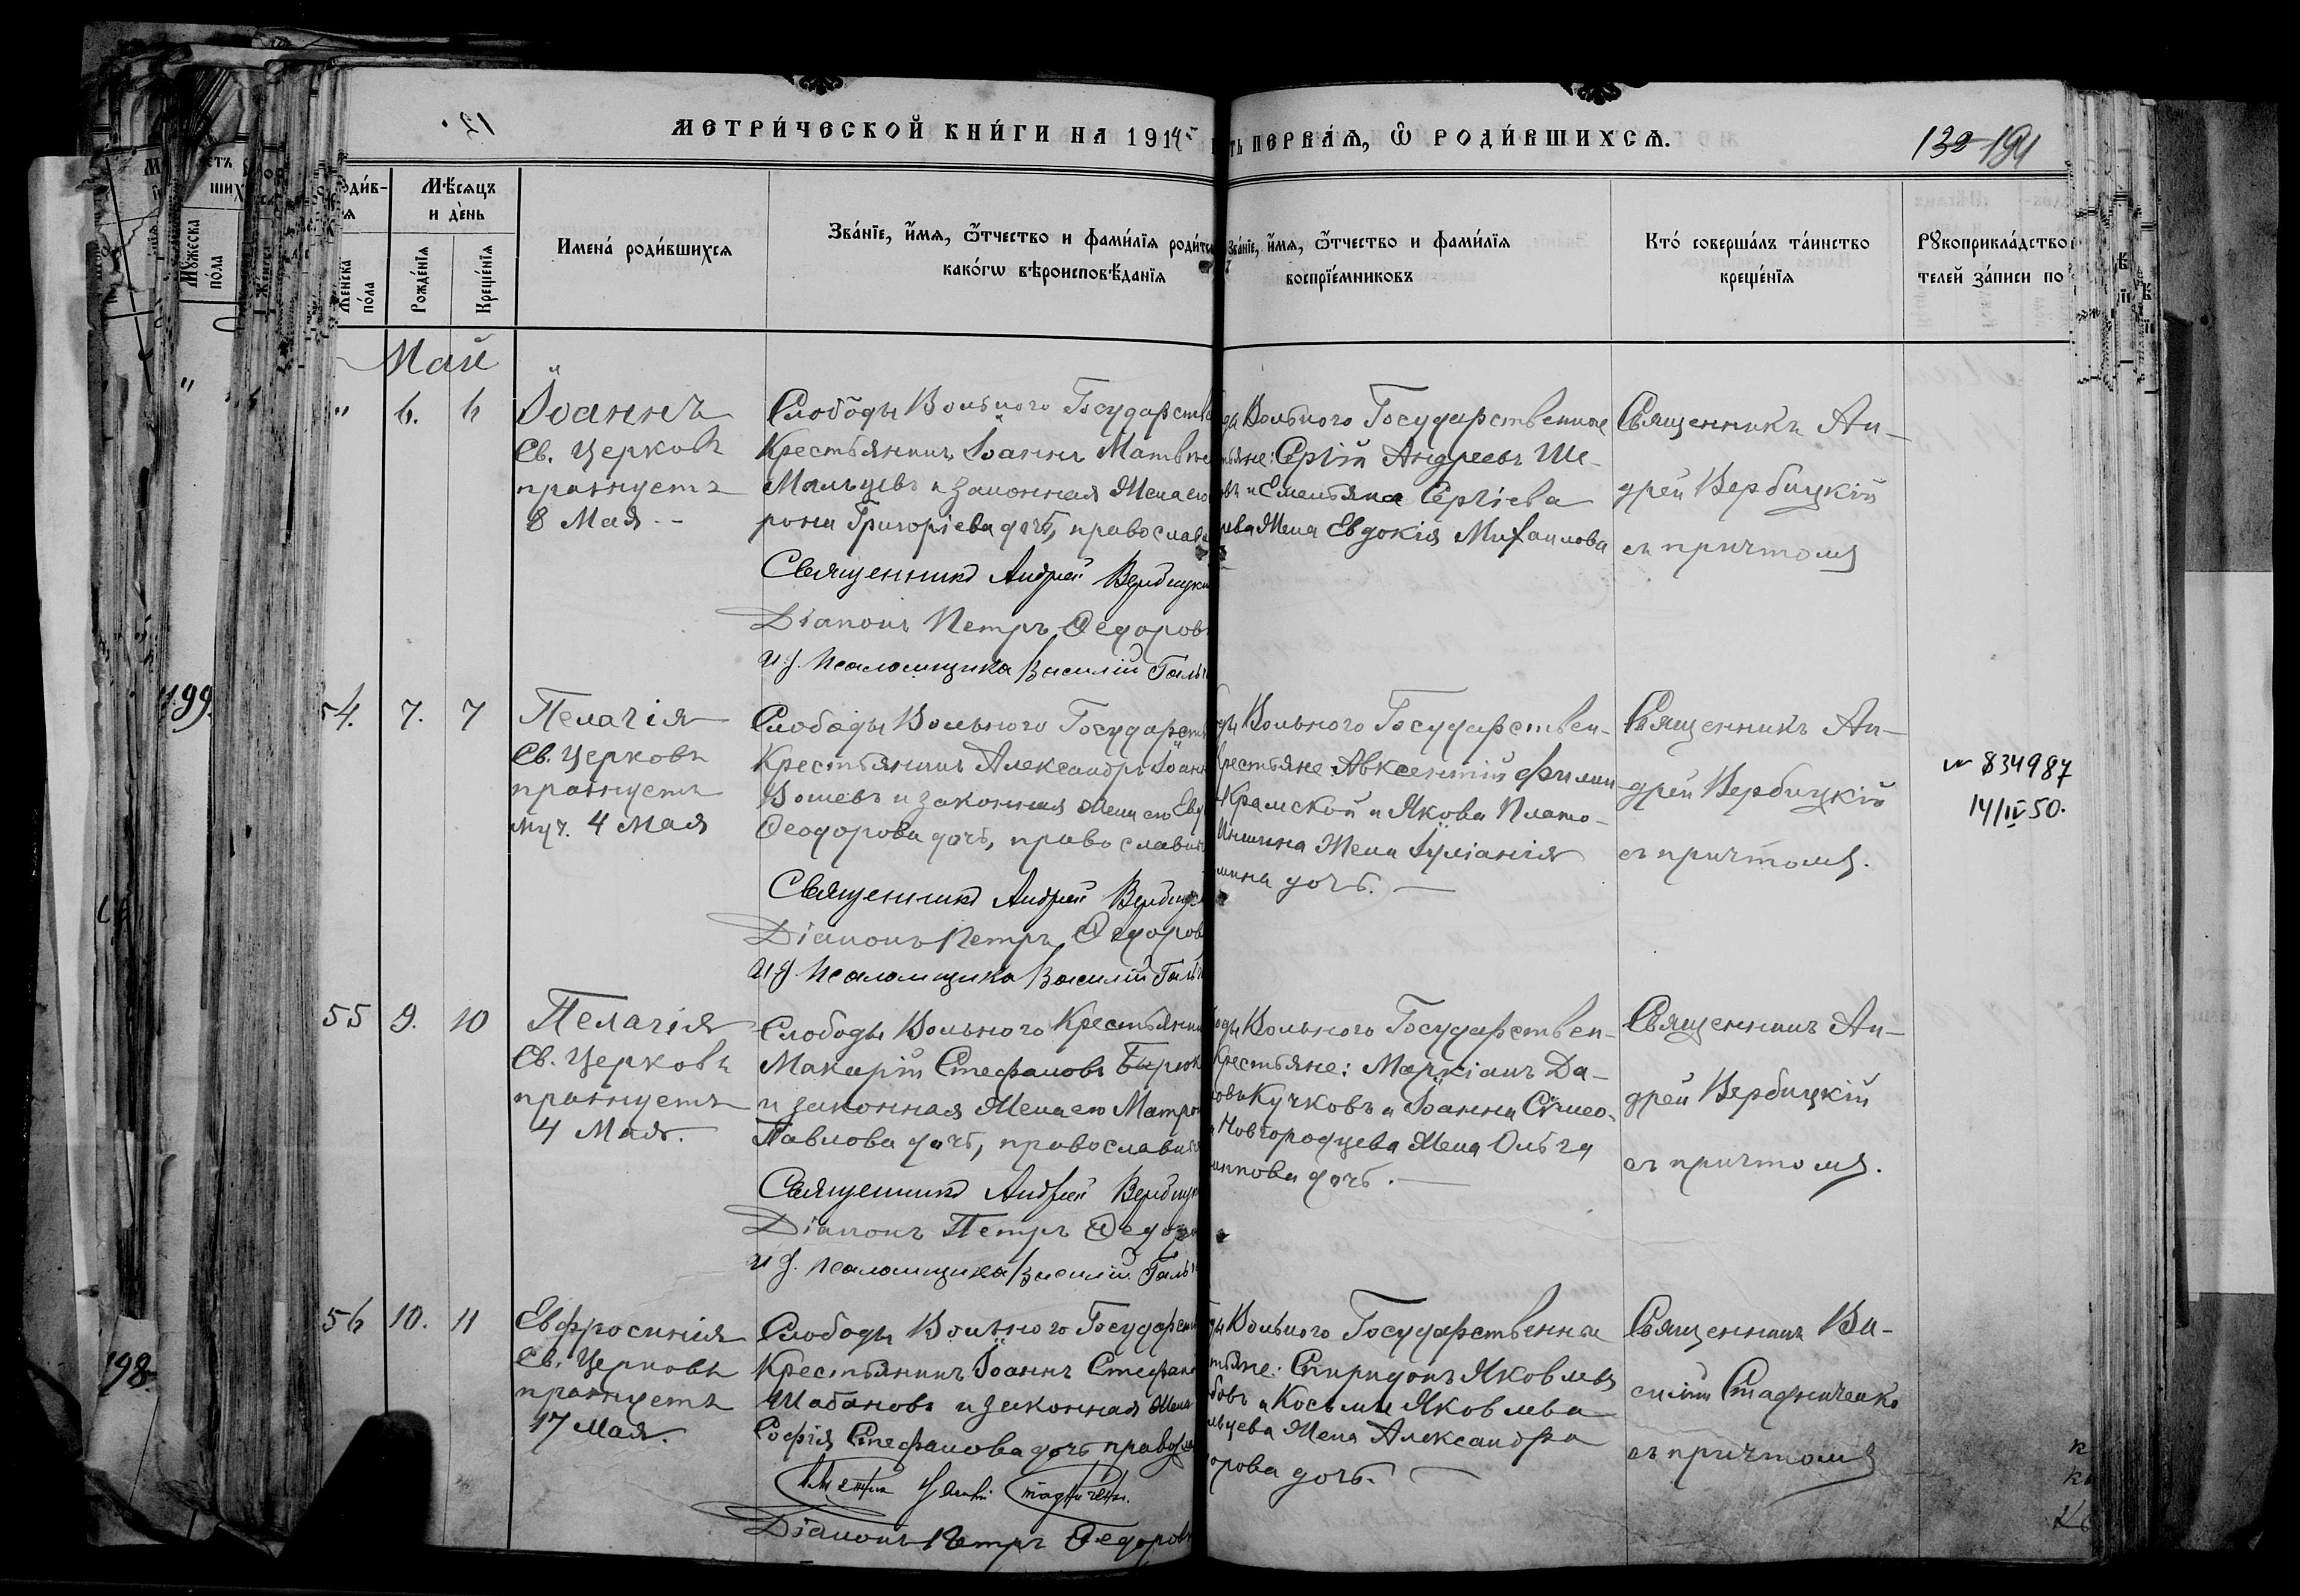 МЕТРИ́ЧЕСКОЙ КНИ́ГИ НА 1914
ПЕРВАЯ, Ѿ РОДИ́ВШИХСЯ.
Мѣ́сяцъ
и де́нь
Же́нска
по́ла
Рожде́нїя
Креще́нїя
Имена́ роди́вшихся
Зва́нїе, и́мя, ѻ́тчество и фами́лїя роди́те
како́гѡ вѣроисповѣ́данїя
Зва́нїе, и́мя, ѻ́тчество и фами́лїя
воспрїе́мниковъ
Кто̀ соверша́лъ та́инство
креще́нїя
Рꙋкоприкла́дство
телей за́писи по
Май
" 6. 6
Іоаннъ
Св. Церковь
празнуетъ
8 Мая
Слободы Вольного Государстве
Крестьянинъ Іоаннъ Матвѣе
Мальцевъ и законная Жена ею
рона Григоріева дочь, православ
Священникъ Андрей Вербицкі
Діаконъ Петръ Ѳедоровъ
И д. Псаломщика Василій Галь
Вольного Государственные
тьяне: Сергій Андреевъ Ше-
овъ и Емельяна Сергіева
Жена Евдокія Михаилова
Священникъ Ан-
дрей Вербицкій
съ причтомъ
54. 7. 7
Пелагія
Св. Церковь
празнуетъ
муч. 4 Мая
Слободы Вольного Государств
Крестьянинъ Александръ Іоанн
Вошевъ и законная Жена ею Евд
Ѳеодорова дочь, православн
Священникъ Андрей Вербицк
Діаконъ Петръ Ѳедоров
И д. Псаломщика Василій Галь
Вольного Государствен-
Крестьяне Авксентій Филип
Крамской и Якова Плато-
Жена Іуліанія
мина дочь.
Священникъ Ан-
дрей Вербицкій
съ причтомъ.
834987
14/IV 50.
55 9. 10
Пелагія
Св. Церковь
празнуетъ
4 Мая.
Слободы Вольного Крестьянин
Макарій Стефановъ Бирюк
и законная Жена ею Матрон
Павлова дочь, православны
Священникъ Андрей Вербицк
Діаконъ Петръ Ѳедоро
И д. Псаломщика Василій Галь
Вольного Государствен-
Крестьяне: Маркіанъ Да-
Кучковъ и Іоанна Сѵмео-
Новгородцева Жена Ольга
иппова дочь.
Священникъ Ан-
дрей Вербицкій
съ причтомъ.
56 10. 11
Евфросинія
Св. Церковь
празнуетъ
17 Мая.
Слободы Вольного Государств
Крестьянинъ Іоаннъ Стефано
Шабановъ и законная Жена
Софія Стефанова дочь правосла
Діаконъ Петръ Ѳедоровъ
Вольного Государственны
тьяне: Спиридонъ Яковлевъ
бовъ и Косьмы Яковлева
льцева Жена Александра
орова дочь.
Священникъ Ва-
силій Стадниченко
съ причтомъ
199.
198